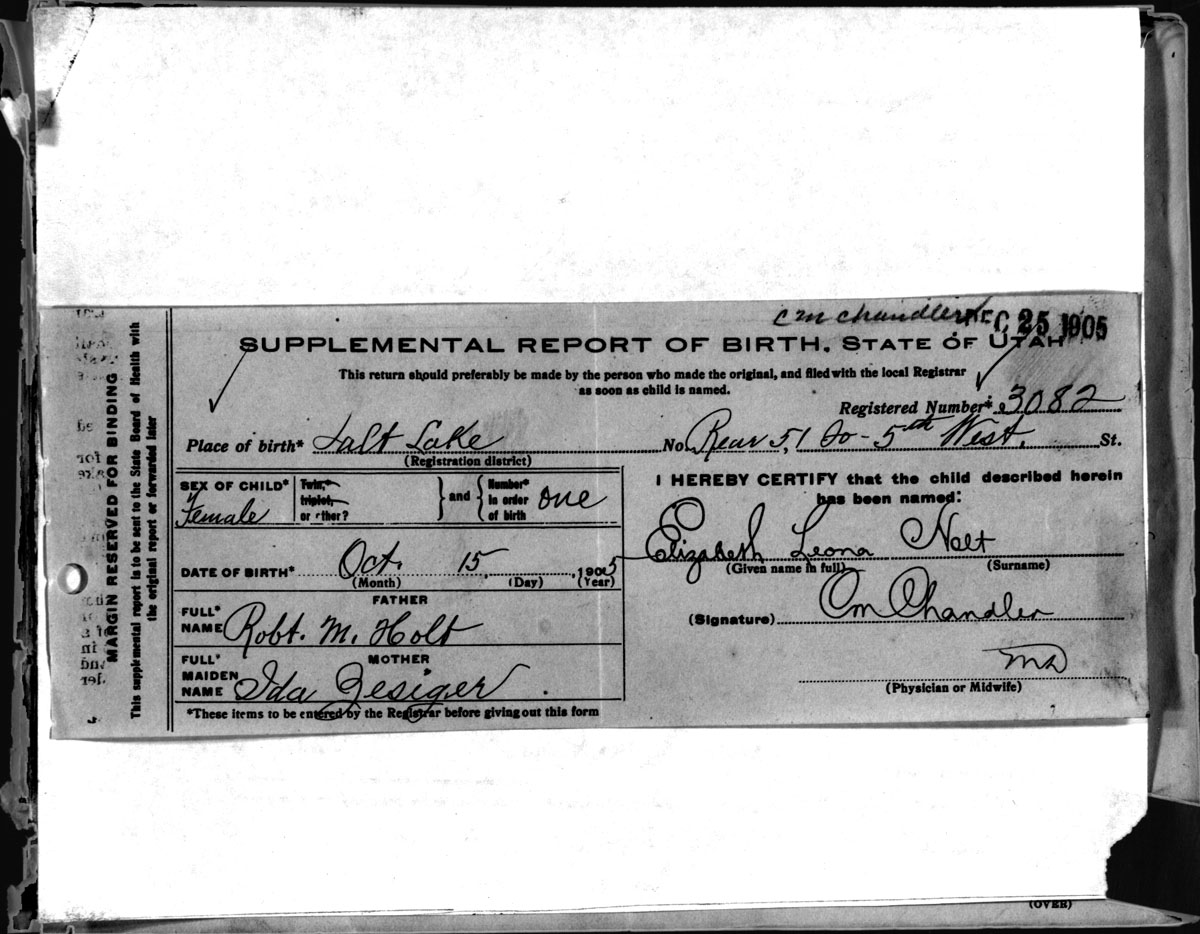 CM Chandler DEC 25 1905
SUPPLEMENTAL REPORT OF BIRTH, STATE OF UTAH
This return should preferably be made by the person who made the original, and filed with the local Registrar
as soon as child is named.
Registered Number* 3082
Place of birth* Salt Lake No. Rear 51 So - 5th West. St.
(Registration district)
SEX OF CHILD* Female
Twin,
triplet,
or other?
and
Number*
in order
of birth
one
DATE OF BIRTH* Oct. 15, 1905
(Month) (Day) (Year)
FATHER
FULL*
NAME Robt. M. Holt
MOTHER
FULL*
MAIDEN
NAME Ida Zesiger
*These items to be entered by the Registrar before giving out this form
I HEREBY CERTIFY that the child described herein
has been named:
Elizabeth Leona Holt
(Given name in full) (Surname)
(Signature) CM Chandler
MD
(Physician or Midwife)
MARGIN RESERVED FOR BINDING
This supplemental report is to be sent to the State Board of Health with
the original report or forwarded later
(OVER)